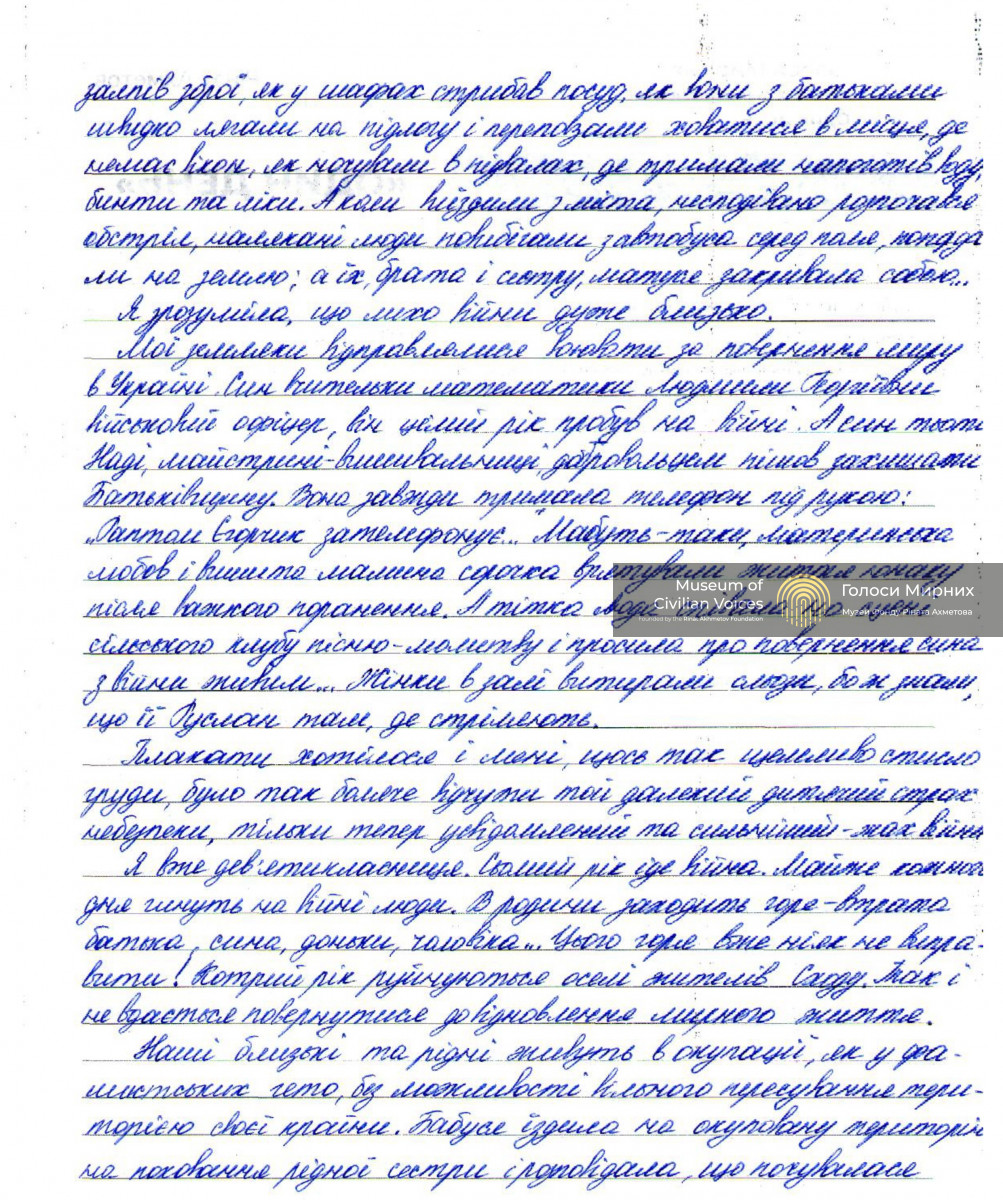 залпів зброї, як у шафах стрибав посуд, як вони з батьками
швидко лягали на підлогу і переповзали ховатися в місця, де
немає вікон, як ночували в підвалах, де тримали напоготів воду,
бинти та ліки. А коли виїздили з міста, несподівано розпочався
обстріл, налякані люди повибігали з автобуса серед поля, попада
ли на землю; а їх, брата і сестру, матуся закривала собою...
Я зрозуміла, що лихо війни дуже близько.
Мої земляки відправлялися воювати за повернення миру
в Україні. Син вчительки математики Людмили Георгіївни
військовий офіцер, він цілий рік пробув на війні. А син тьоті
Наді, майстрині-вишивальниці, добровольцем пішов захищати
Батьківщину. Вона завжди тримала телефон під рукою:
„Раптом Єгорчик зателефонує... Мабуть-таки, материнська
любов і вишита мамина сорочка врятували життя юнаку
після важкого поранення. А тітка Люда співала на сцені
сільського клубу пісню-молитву і просила про повернення сина
з війни живим... Жінки в залі витирали сльози, бо ж знали,
що її Руслан там, де стріляють.
Плакати хотілося і мені, щось так щемливо стисло
груди, було так боляче відчути той далекий дитячий страх
небезпеки, тільки тепер усвідомлений та сильніший-жах війни
Я вже дев'ятикласниця. Сьомий рік іде війна. Майже кожного
дня гинуть на війні люди. В родини заходить горе-втрата
батька, сина, доньки, чоловіка... Цього горя вже ніяк не випра-
вити! Котрий рік руйнуються оселі жителів Сходу. Так і
не вдається повернутися до відновлення мирного життя.
Наші близькі та рідні живуть в окупації, як у фа-
шистських гето, без можливості вільного пересування тери-
торією своєї країни. Бабуся їздила на окуповану територію
на поховання рідної сестри і розповідала, що почувалася
Museum of
Civilian Voices
Founded by the Rinat Akhmetov Foundation
Голоси Мирних
Музей Фонду Ріната Ахметова